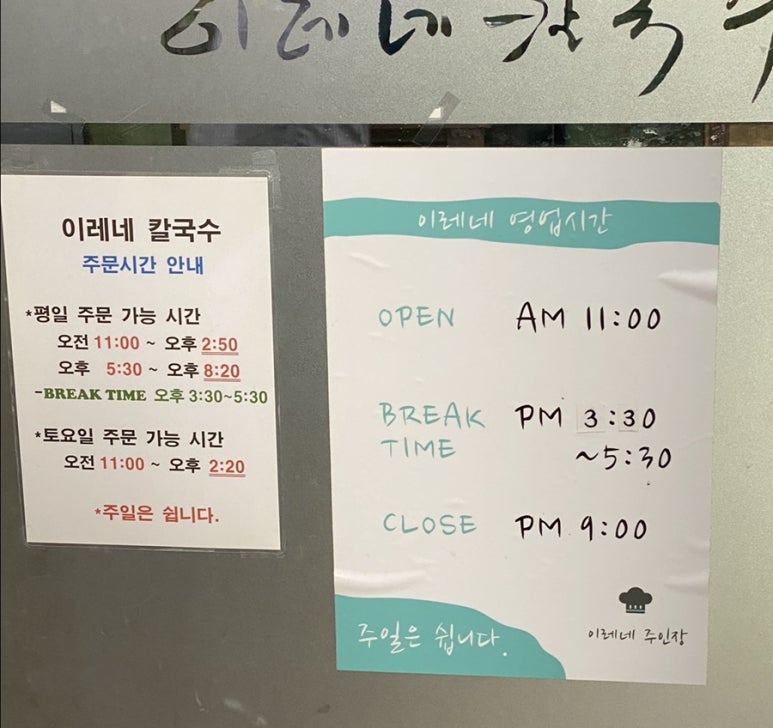 이레네 칼국수
이레네 칼국수
주문시간 안내
*평일 주문 가능 시간
오전 11:00 ~ 오후 2:50
오후 5:30 ~ 오후 8:20
-BREAK TIME 오후 3:30~5:30
*토요일 주문 가능 시간
오전 11:00 ~ 오후 2:20
*주일은 쉽니다.
이레네 영업시간
OPEN AM 11:00
BREAK PM 3:30
TIME ~5:30
CLOSE PM 9:00
주일은 쉽니다.
이레네 주인장